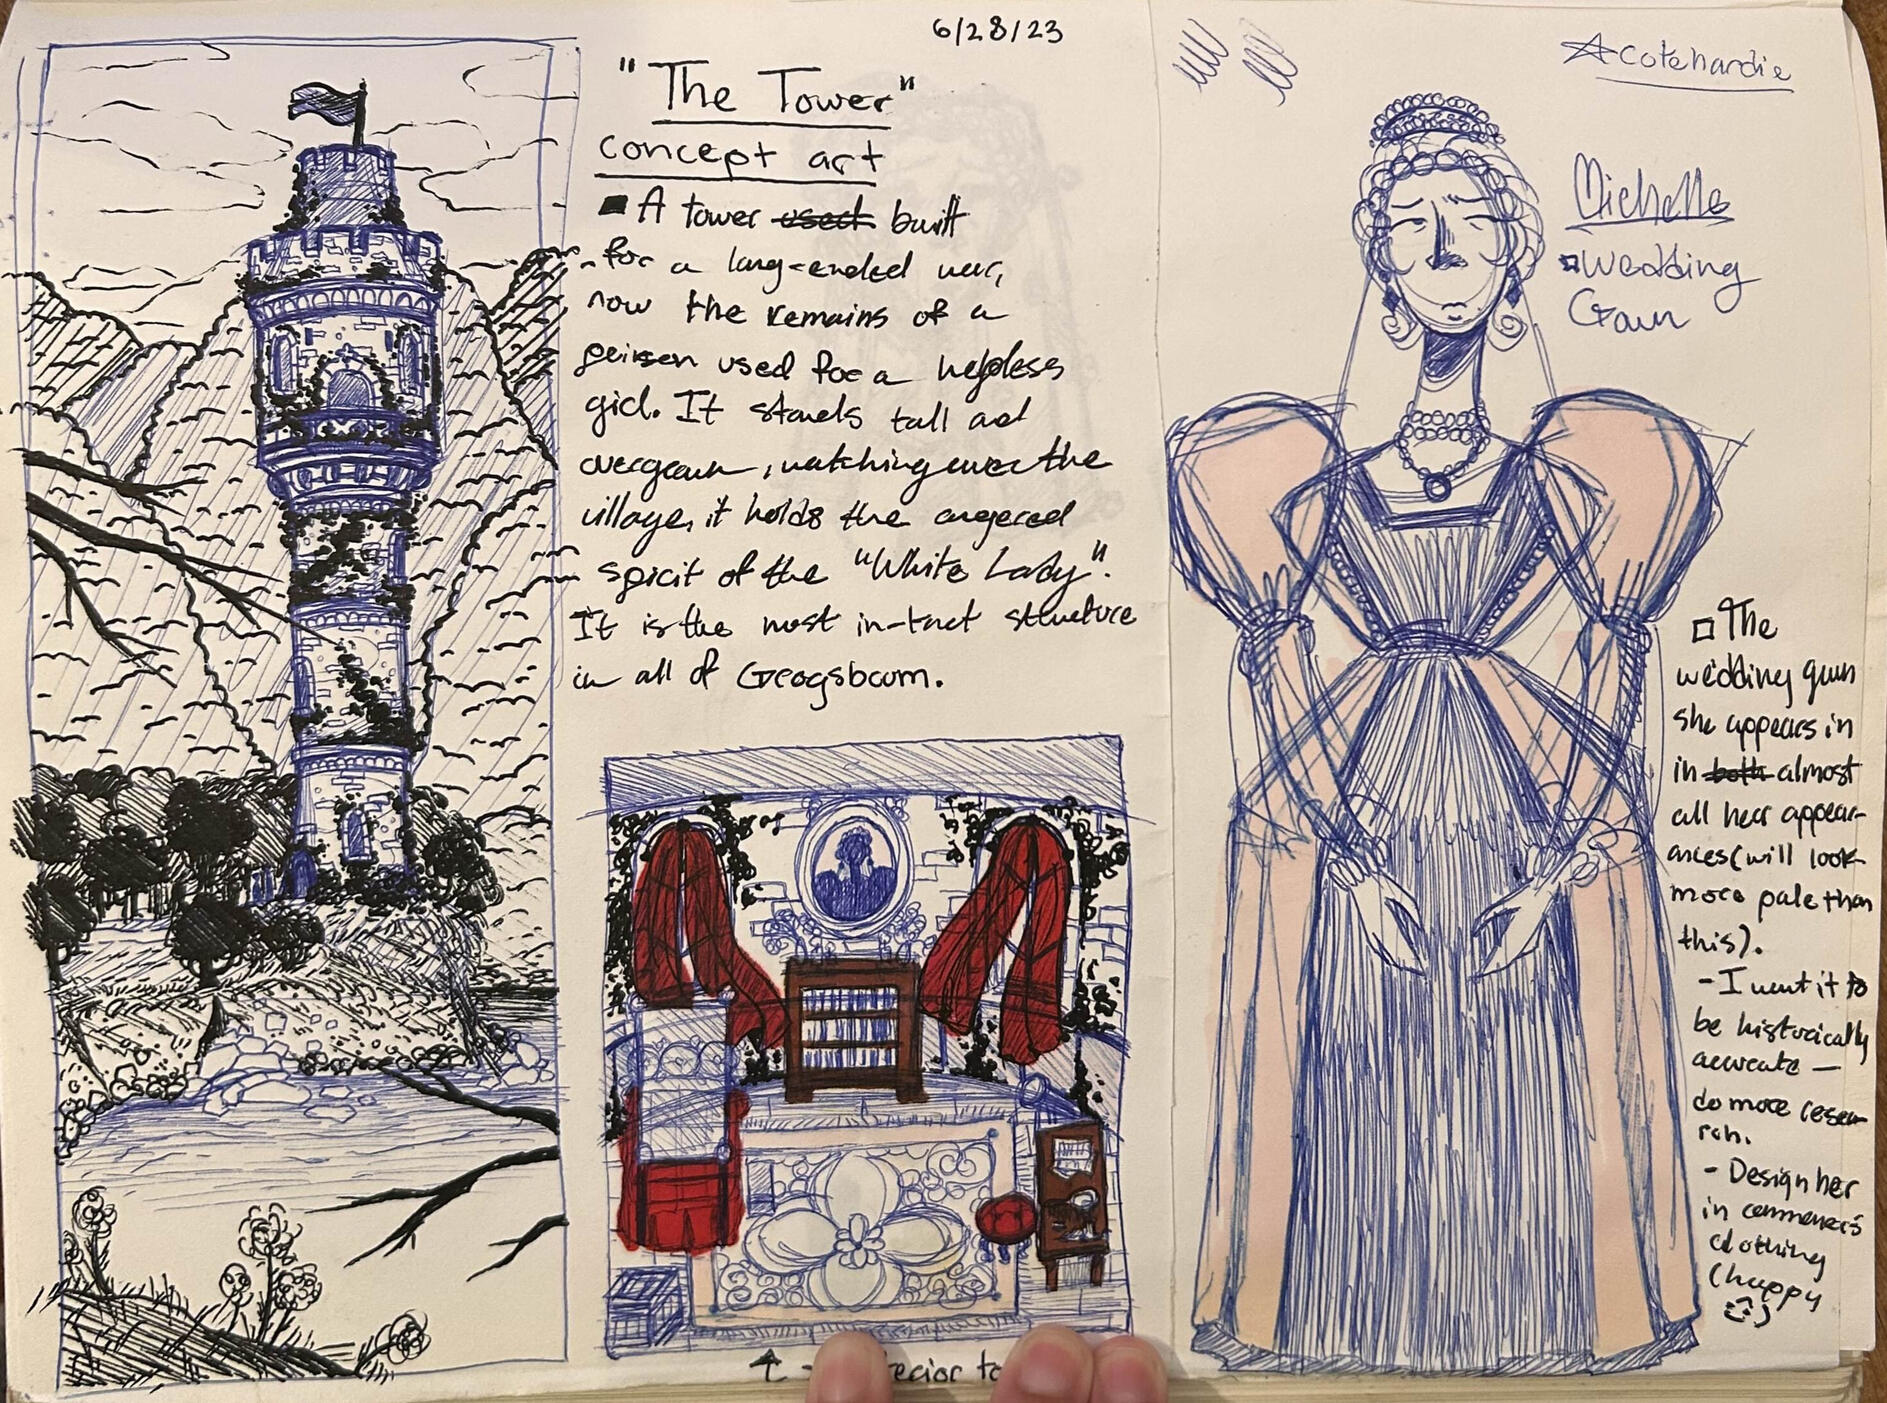 6/28/23
"The Tower"
concept art
A tower used built
for a long-ended war,
now the remains of a
person used for a helpless
girl. It stands tall and
overgrown, watching over the
village, it holds the angered
spirit of the "White Lady".
It is the most in-tact structure
in all of
↑ - terior to
☆cotehardie
Michelle
wedding
Gown
The
wedding gown
she appears in
in both almost
all her appear-
ances (will look
more pale than
this).
- I want it to
be historically
accurate —
do more resea-
rch.
- Design her
in commoner's
clothing
(happy
:))